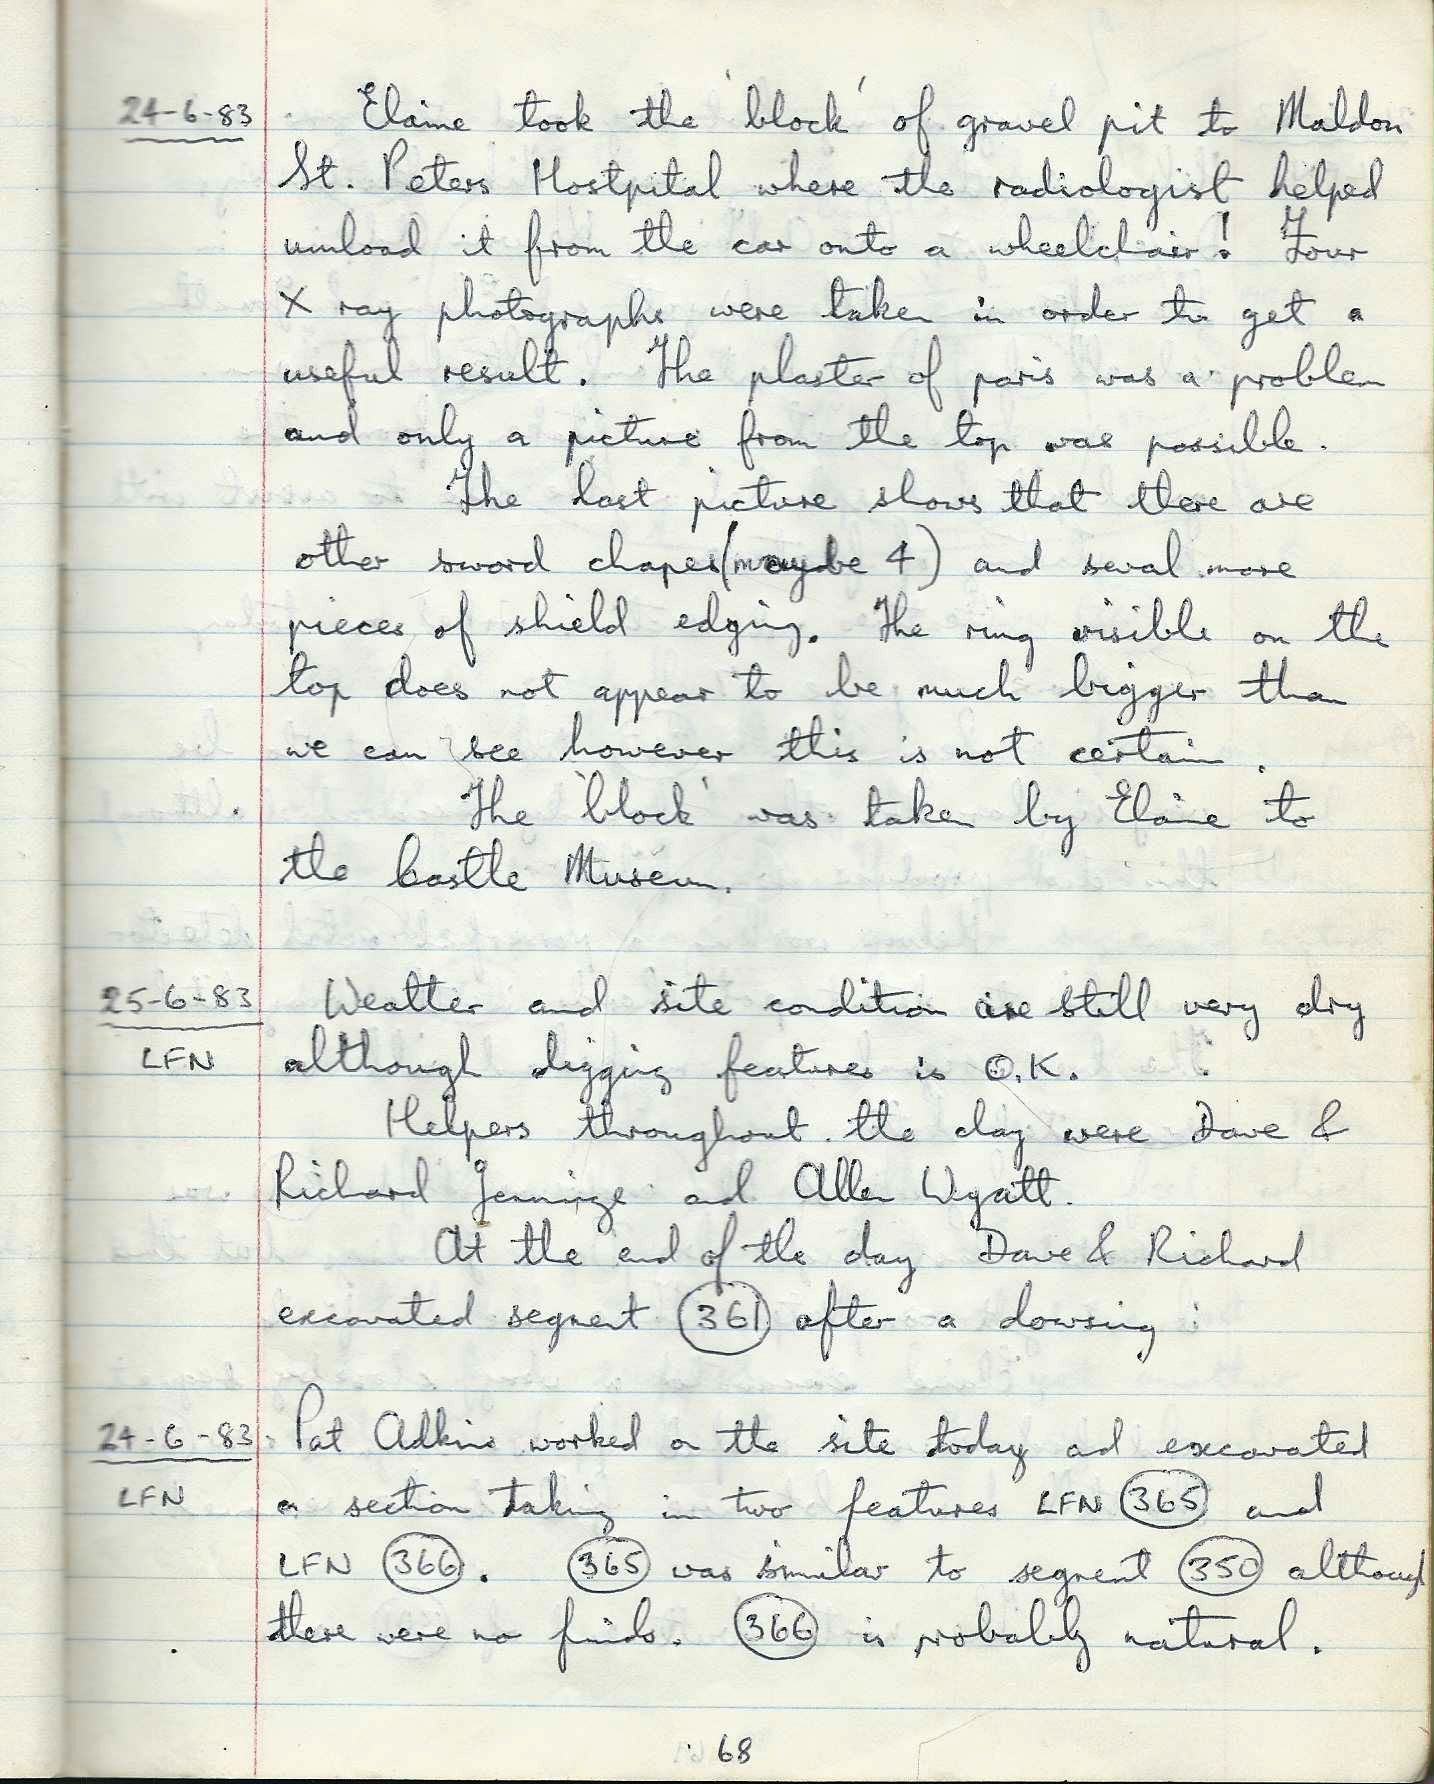 24-6-83 Elaine took the 'block' of gravel pit to Maldon
St. Peters Hostpital where the radiologist helped
unload it from the car onto a wheelchair! Four
X ray photographs were taken in order to get a
useful result. The plaster of paris was a problem
and only a picture from the top was possible.
The last picture shows that there are
other sword chapes (maybe 4) and seval more
pieces of shield edging. The ring visible on the
top does not appear to be much bigger than
we can see however this is not certain.
The 'block' was taken by Elaine to
the Castle Museum.
25-6-83 Weather and site condition are still very dry
LFN although digging features is O.K.
Helpers throughout the day were Dave &
Richard Jennings and Allen Wyatt.
At the end of the day Dave & Richard
excavated segment 361 after a dowsing
24-6-83 Pat Adkins worked on the site today and excavated
LFN a section taking in two features LFN 365 and
LFN 366. 365 was similar to segment 350 although
there were no finds. 366 is probably natural.
68